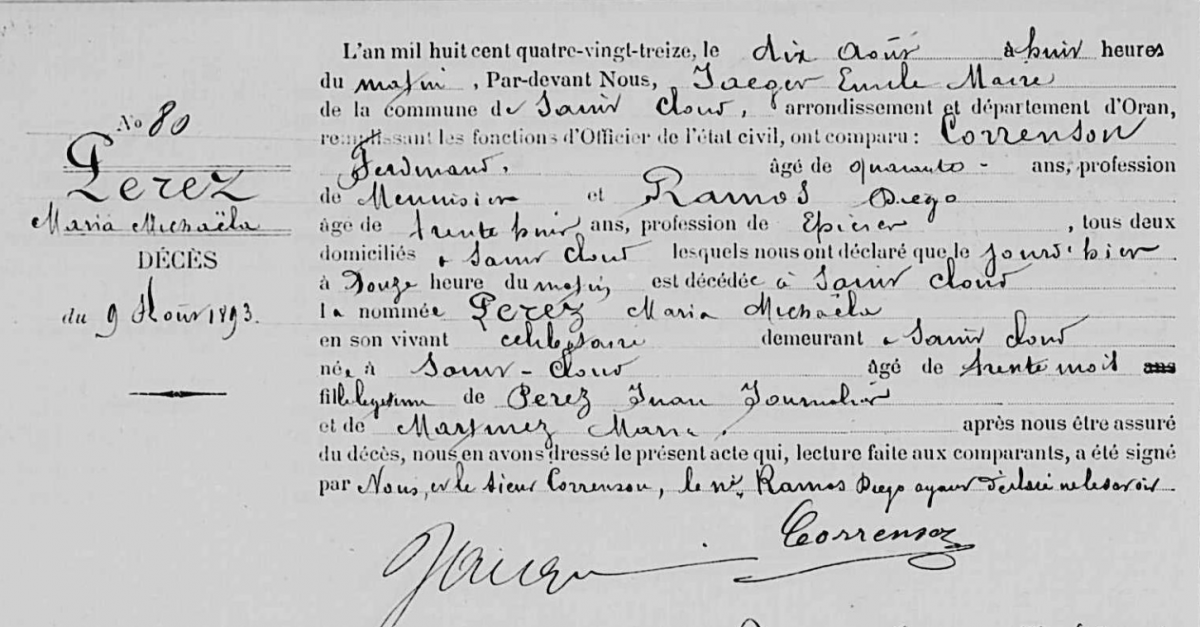 N° 80
Perez
Maria Michaëla
DÉCÈS
du 9 Août 1893.
L'an mil huit cent quatre-vingt-treize, le dix Août à huit heures
du matin, Par-devant Nous, Jaeger Emile Maire
de la commune de Saint Cloud, arrondissement et département d'Oran,
remplissant les fonctions d'Officier de l'état civil, ont comparu : Correnson
Ferdinand, âgé de quarante - ans, profession
de Menuisier et Ramos Diego
âgé de trente huit ans, profession de Epicier, tous deux
domiciliés à Saint Cloud lesquels nous ont déclaré que le jourd'hier
à Douze heure du matin, est décédée à Saint Cloud
la nommée Perez Maria Michaëla
en son vivant célibataire demeurant à Saint Cloud
née à Saint-Cloud âgé de trente mois ans
fille légitime de Perez Juan Journalier
et de Martinez Maria. après nous être assuré
du décès, nous en avons dressé le présent acte qui, lecture faite aux comparants, a été signé
par Nous, et le sieur Correnson, le né, Ramos Diego ayant déclaré ne le savoir.
Correnson